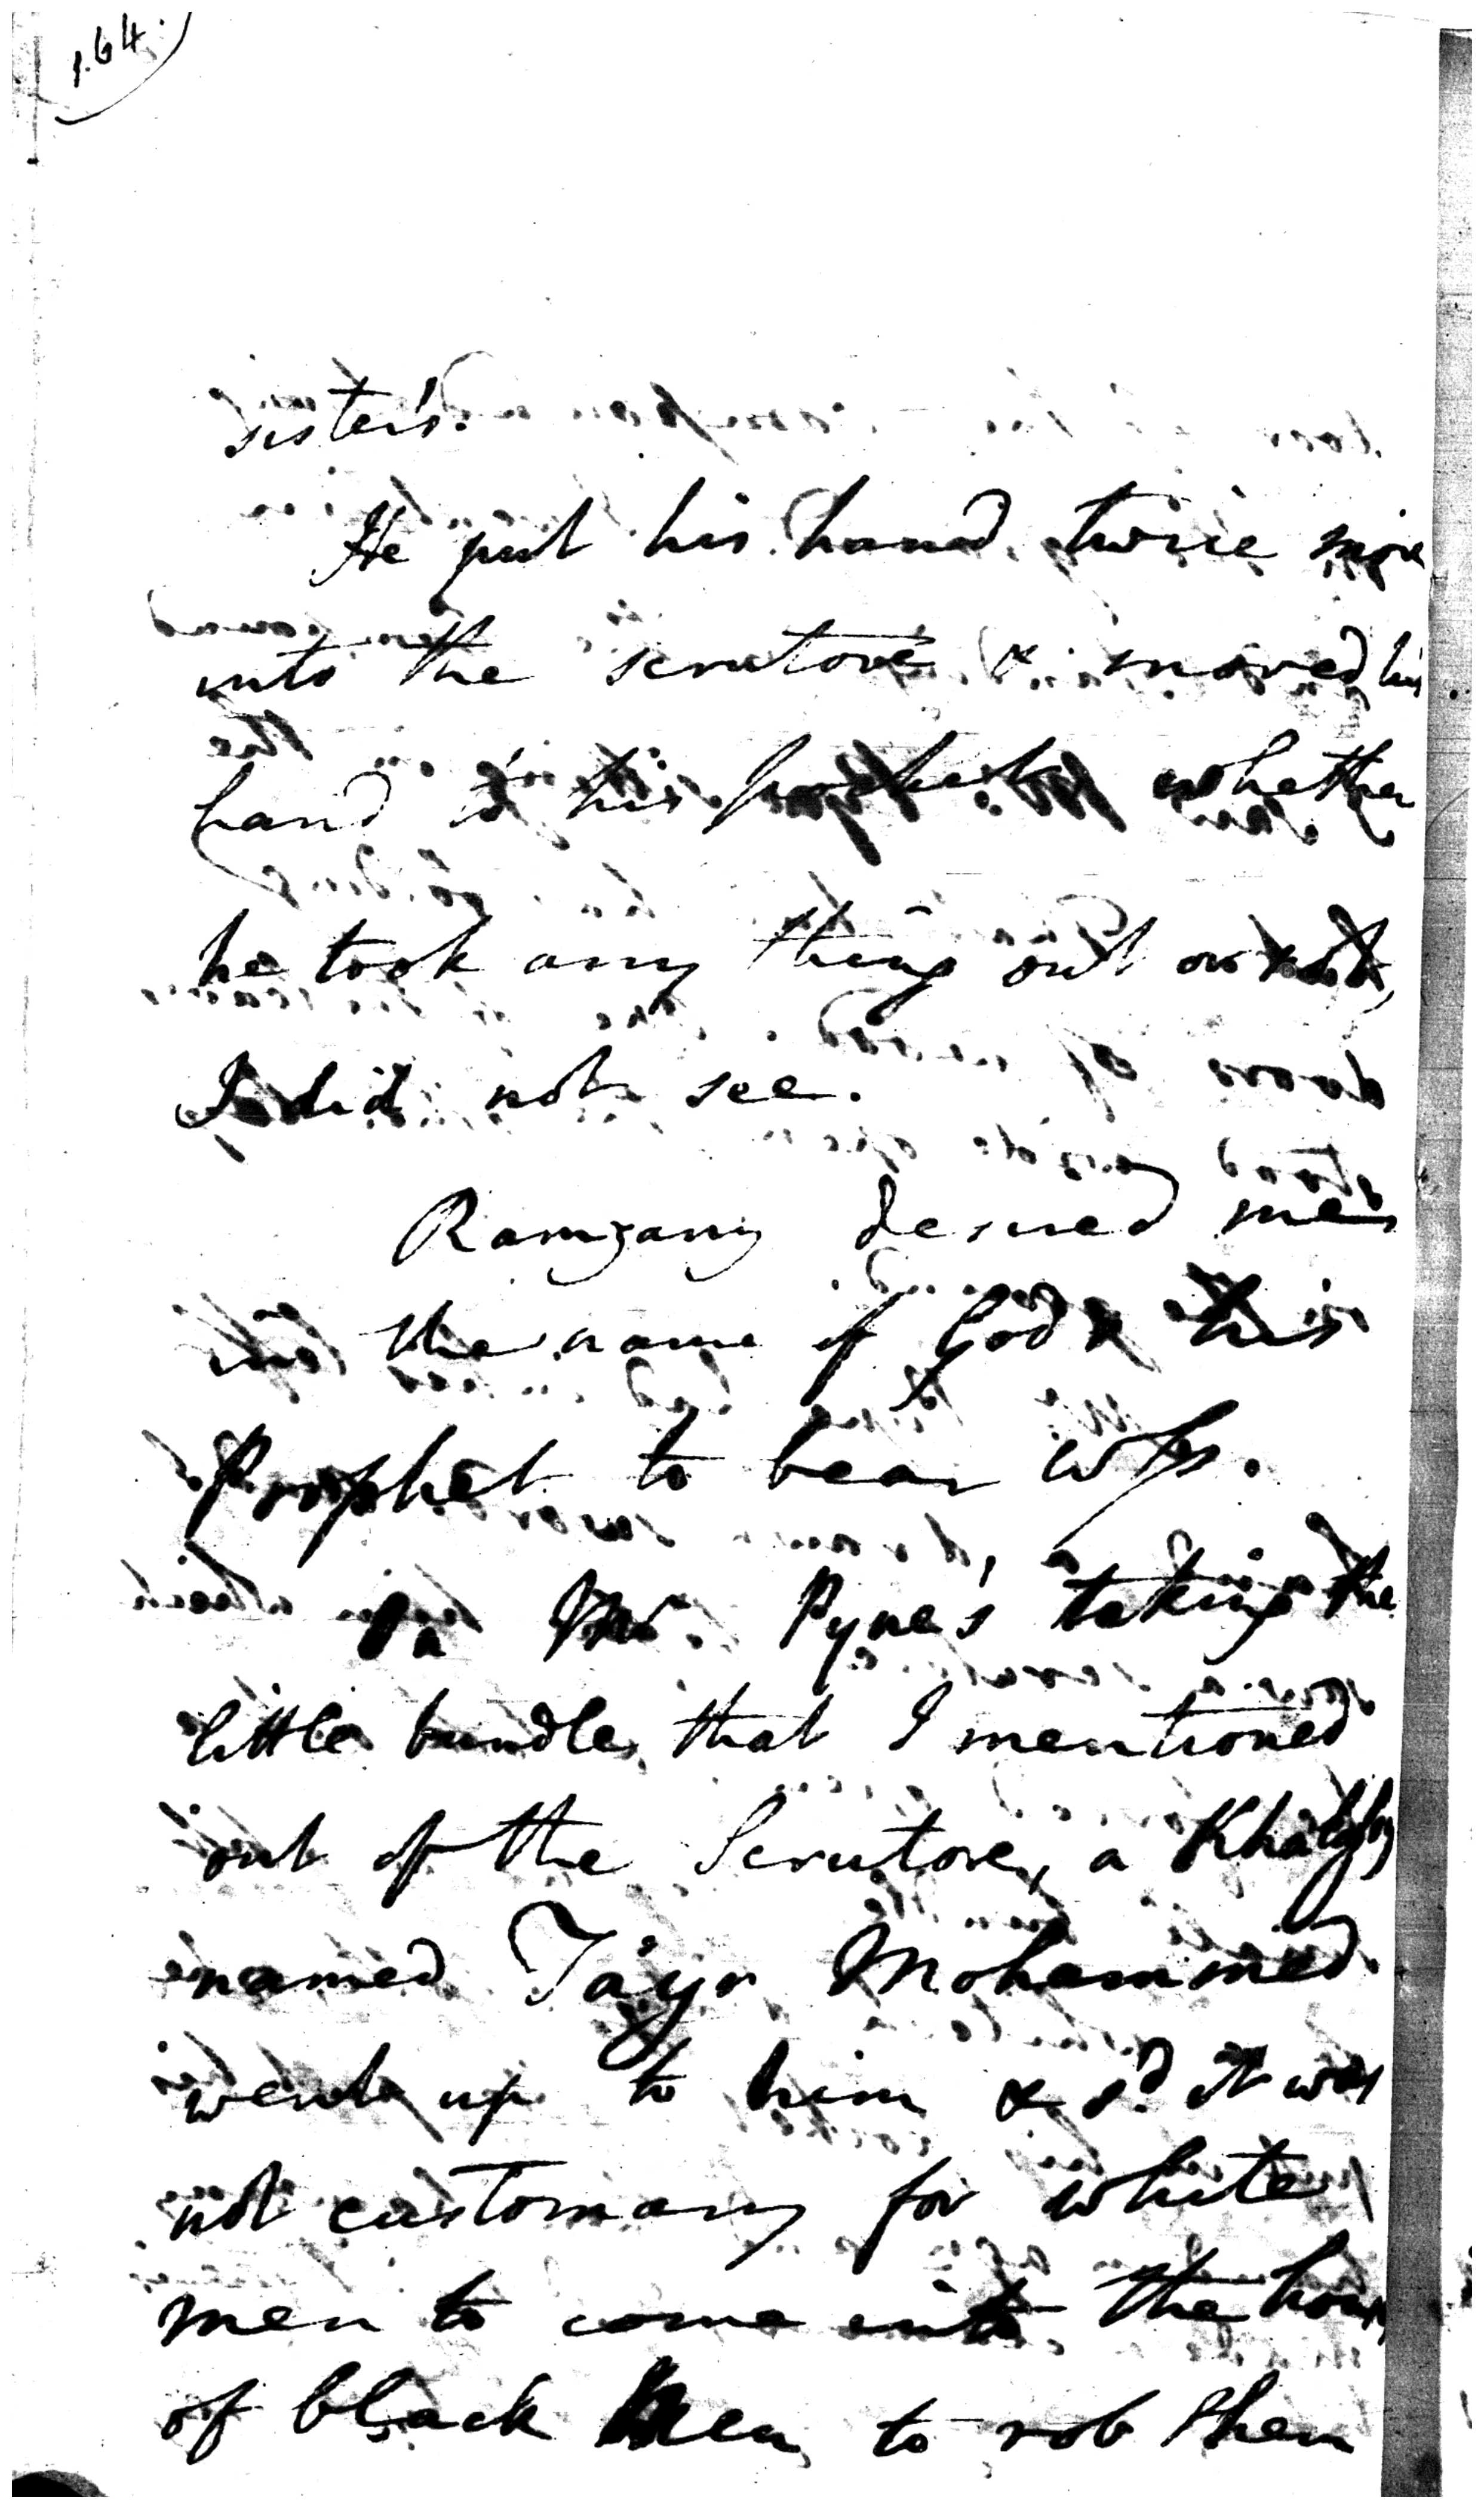 164.
sister's.
He put his hand twice more
into the scrutore & moved his
hand to his pocket but whether
he took any thing out or not,
I did not see.
Ramzany desired me
in the name of God & his
Prophet to bear wss.
On Mr. Pyne's taking the
little bundle, that I mentioned
out of the Scrutore, a
named Mohammed
went up to him & sd. it was
not customary for white
men to come into the houses
of black Men to rob them